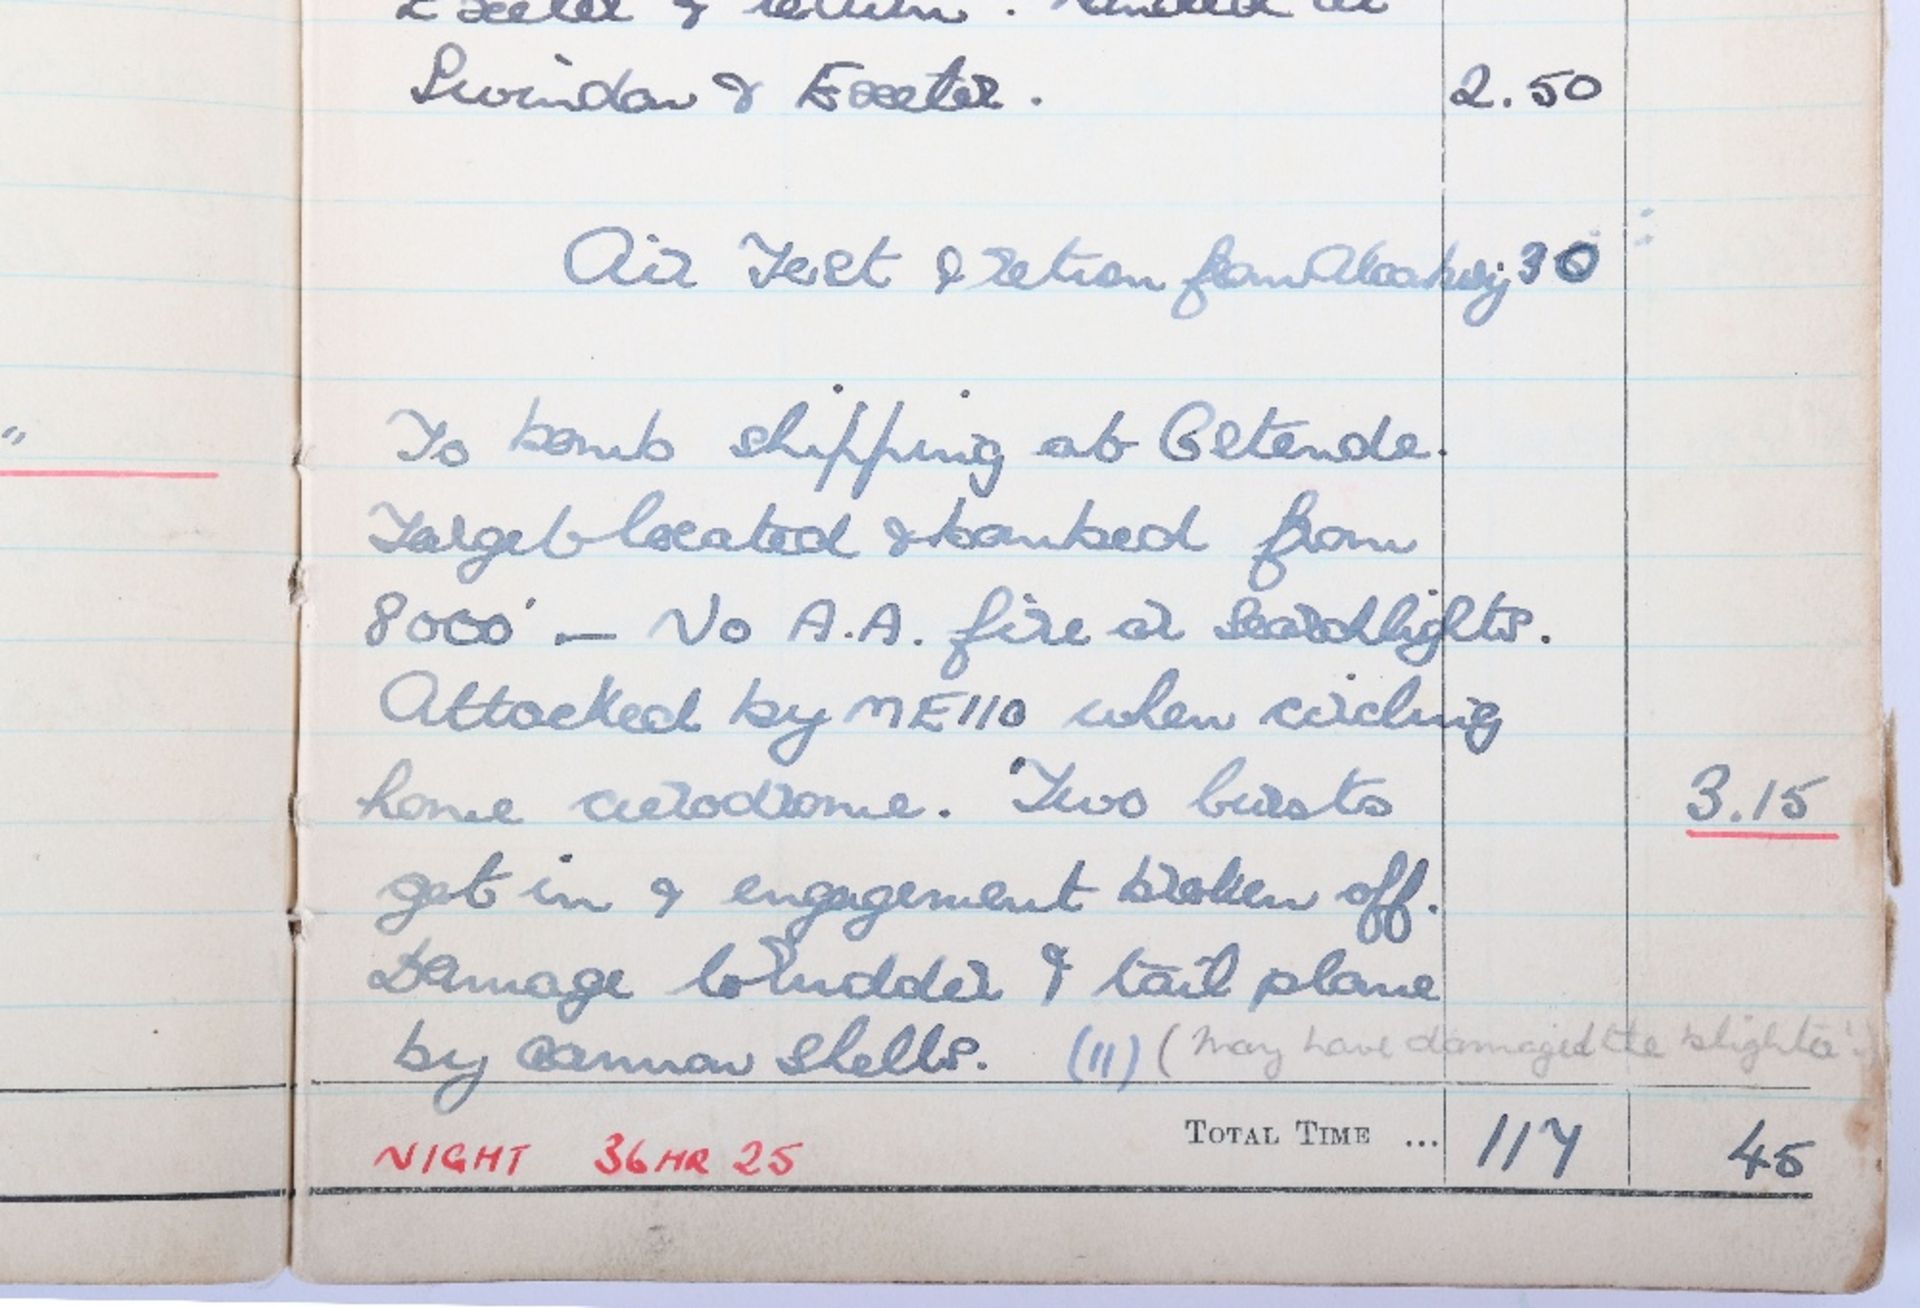 Exeter & return. Landed at
Swindon & Exeter. 2.50
Air Test & return from Alconbury 30
"
To bomb shipping at Ostende.
Target located & bombed from
8000' — No A.A. fire or searchlights.
Attacked by ME110 when circling
home aerodrome. Two bursts 3.15
got in & engagement broken off.
Damage to rudder & tail plane
by cannon shells. (11) (May have damaged the blighter!)
NIGHT 36 HR 25 TOTAL TIME ... 117 45